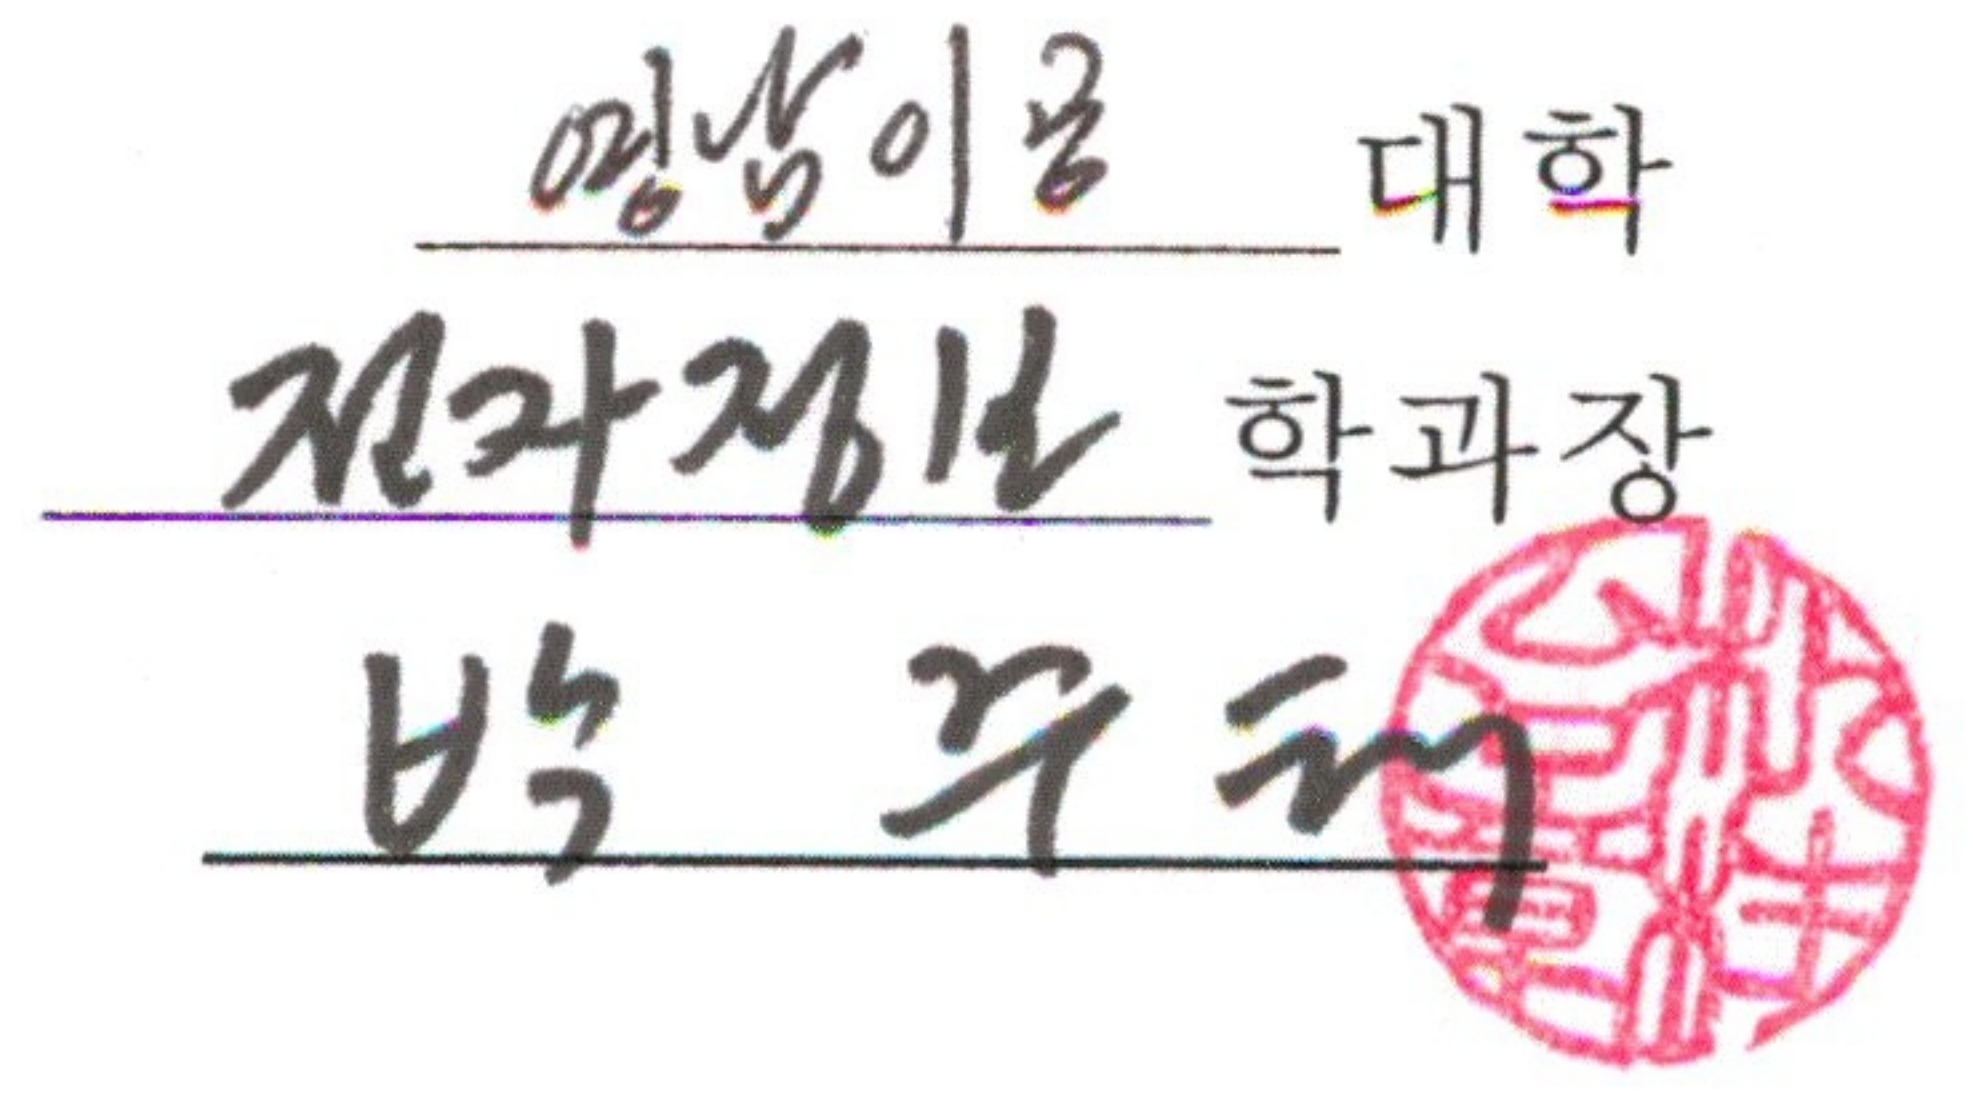 영남이공 대학
전자정보 학과장
박 주태